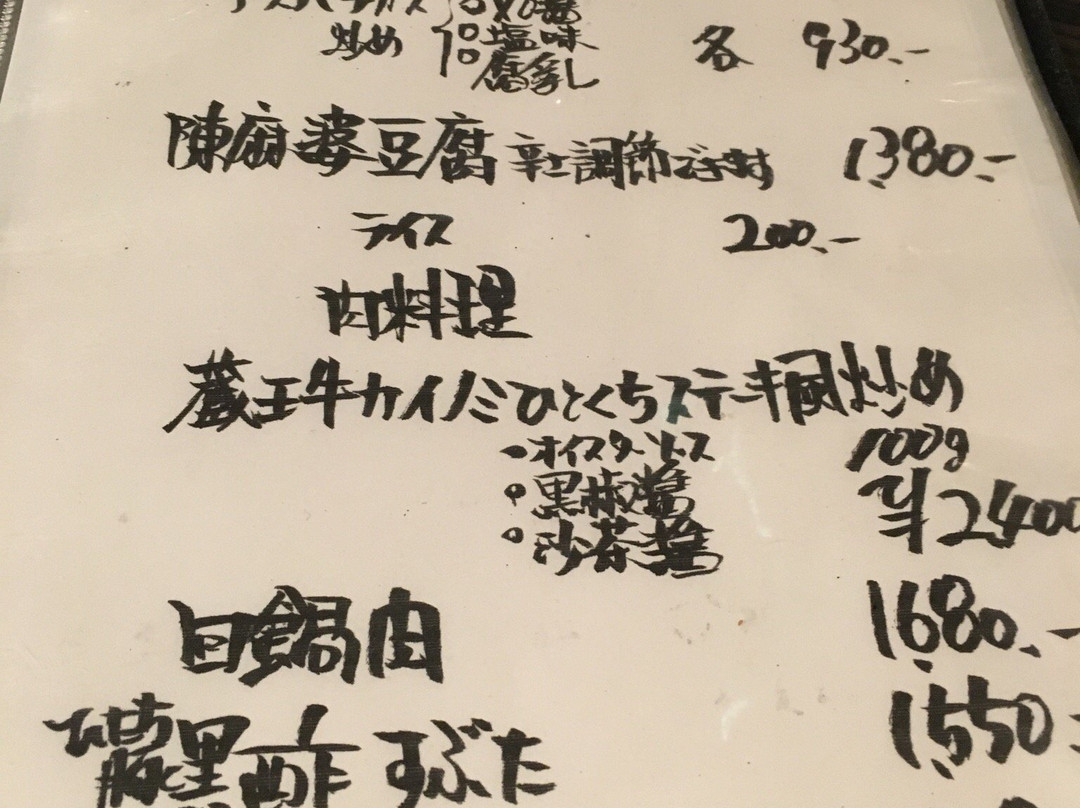 炒め 塩味 各 930.-
腐乳
陳麻婆豆腐 辛さ調節できます 1,380.-
ライス 200.-
肉料理
蔵王牛カイノミひとくちステーキ風炒め
・オイスターソース 100g
・黒麻醤 ¥2400
・沙茶醤
回鍋肉 1,680.-
黒酢すぶた 1,550.-